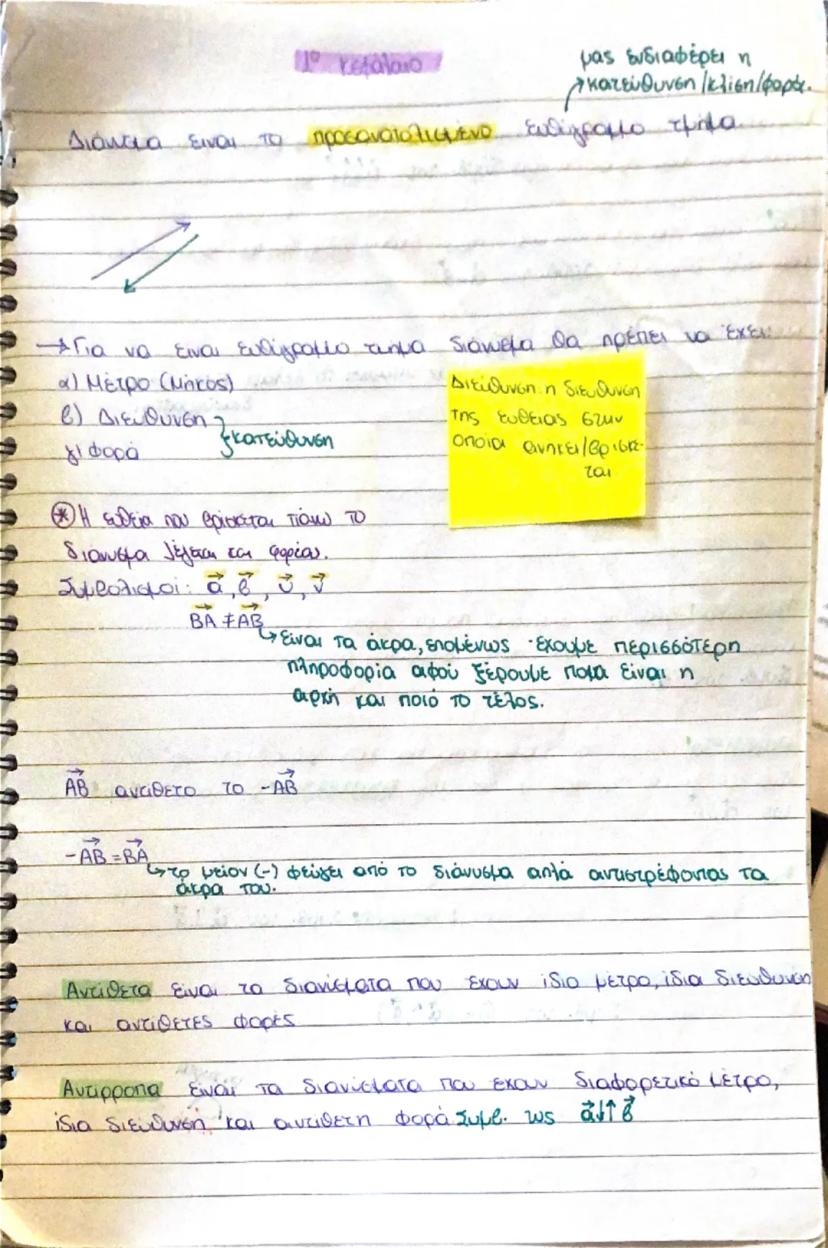 1° κεφάλαιο
μας ενδιαφέρει η
κατεύθυνση/κλίση/φορά.
Διάνυσμα ειναι το προσανατολισμένο ευθύγραμμο τμήμα
→ Για να ειναι ευθύγραμμο τμημα διάνυσμα θα πρέπει να έχει:
α) Μέτρο (μήκος)
β) Διεύθυνση
γ) φορά
} κατεύθυνση
Διεύθυνση η διευθυνση
της ευθειας στην
οποια ανηκει/βρισκε-
ται
* Η ευθεία που βρίσκεται πάνω το
διανυσμα λέγεται και φορέας.
Συμβολισμοί: α⃗, β⃗, υ⃗, v⃗
ΒΑ⃗ ≠ ΑΒ⃗
↳ είναι τα άκρα, επομένως έχουμε περισσότερη
πληροφορία αφού ξέρουμε ποια είναι η
αρχή και ποιό το τέλος.
ΑΒ⃗ αντιθετο το -ΑΒ⃗
-ΑΒ⃗ = ΒΑ⃗
↳ το μείον (-) φεύγει από το διάνυσμα απλά αντιστρέφοντας τα
άκρα του.
Αντίθετα ειναι τα διανύσματα που εχουν ίδιο μέτρο, ίδια διευθυνση
και αντιθετες φορές
Αντιρροπα ειναι τα διανύσματα που εχουν διαφορετικό μέτρο,
ίδια διευθυνση και αντιθετη φορά Συμβ. ως α⃗↓↑β⃗